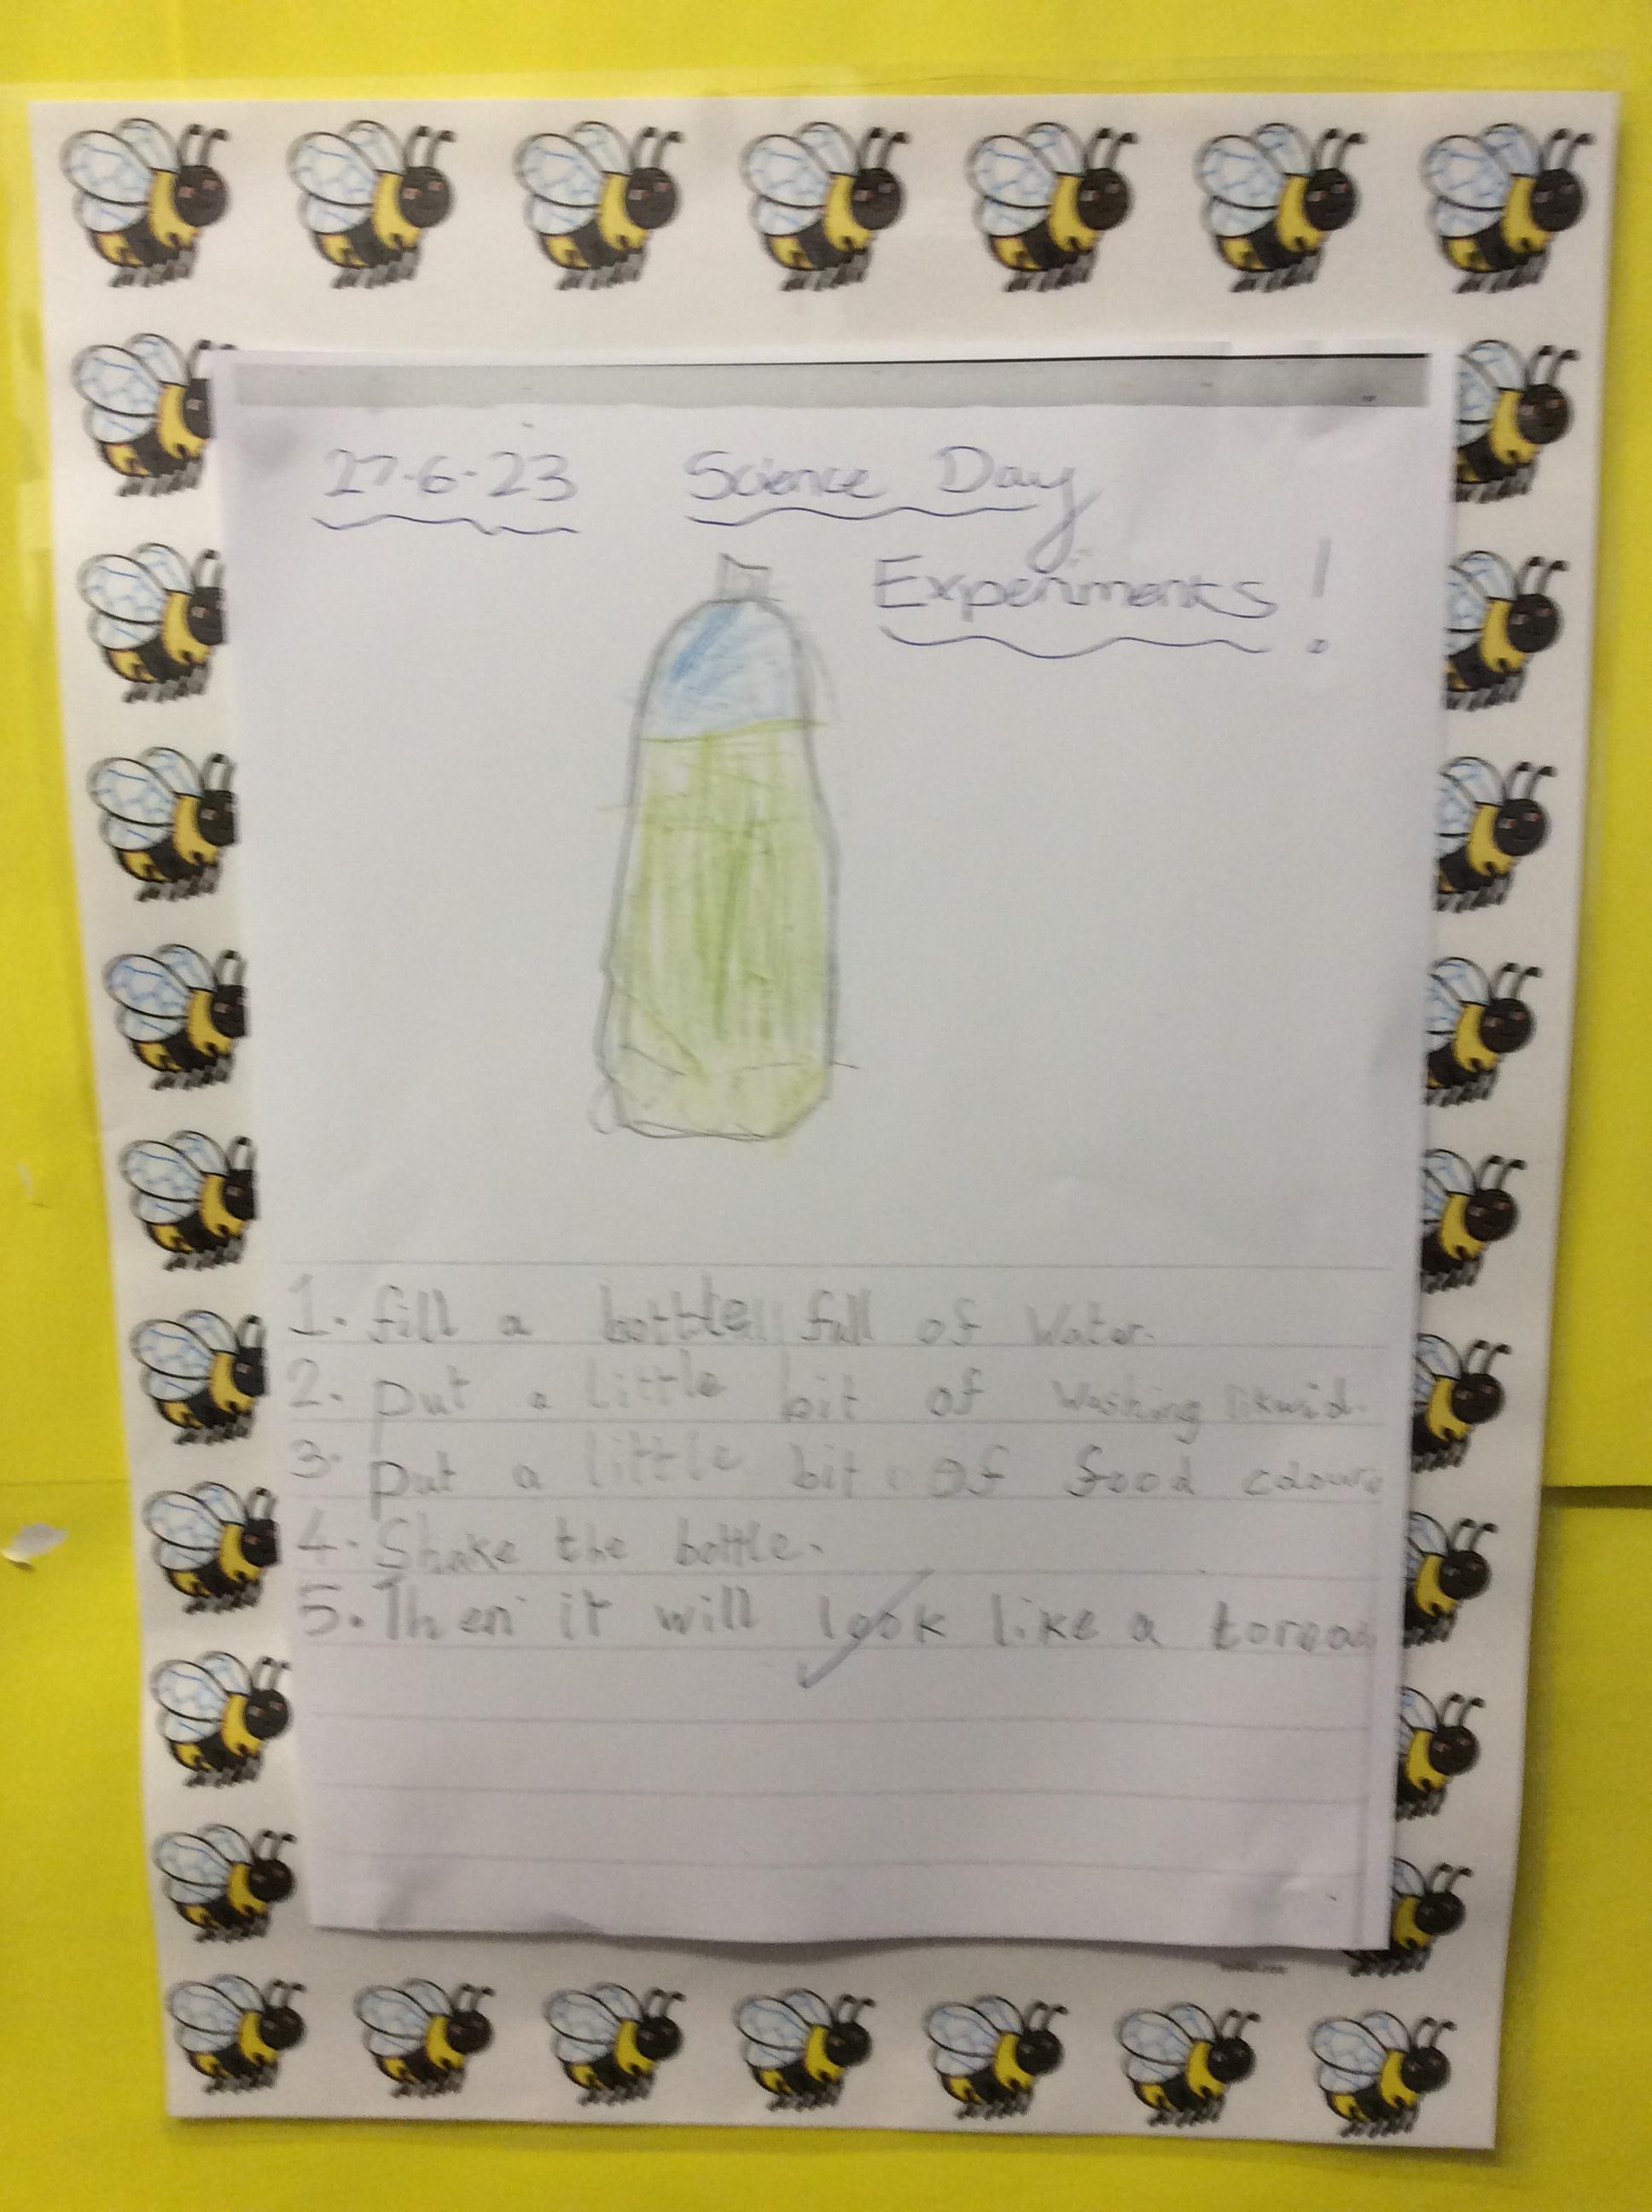 27-6-23 Science Day
Experiments!
1. fill a bottle full of water.
2. put a little bit of washing likwid.
3. put a little bit of food colour
4. Shake the bottle.
5. Then it will look like a tornad